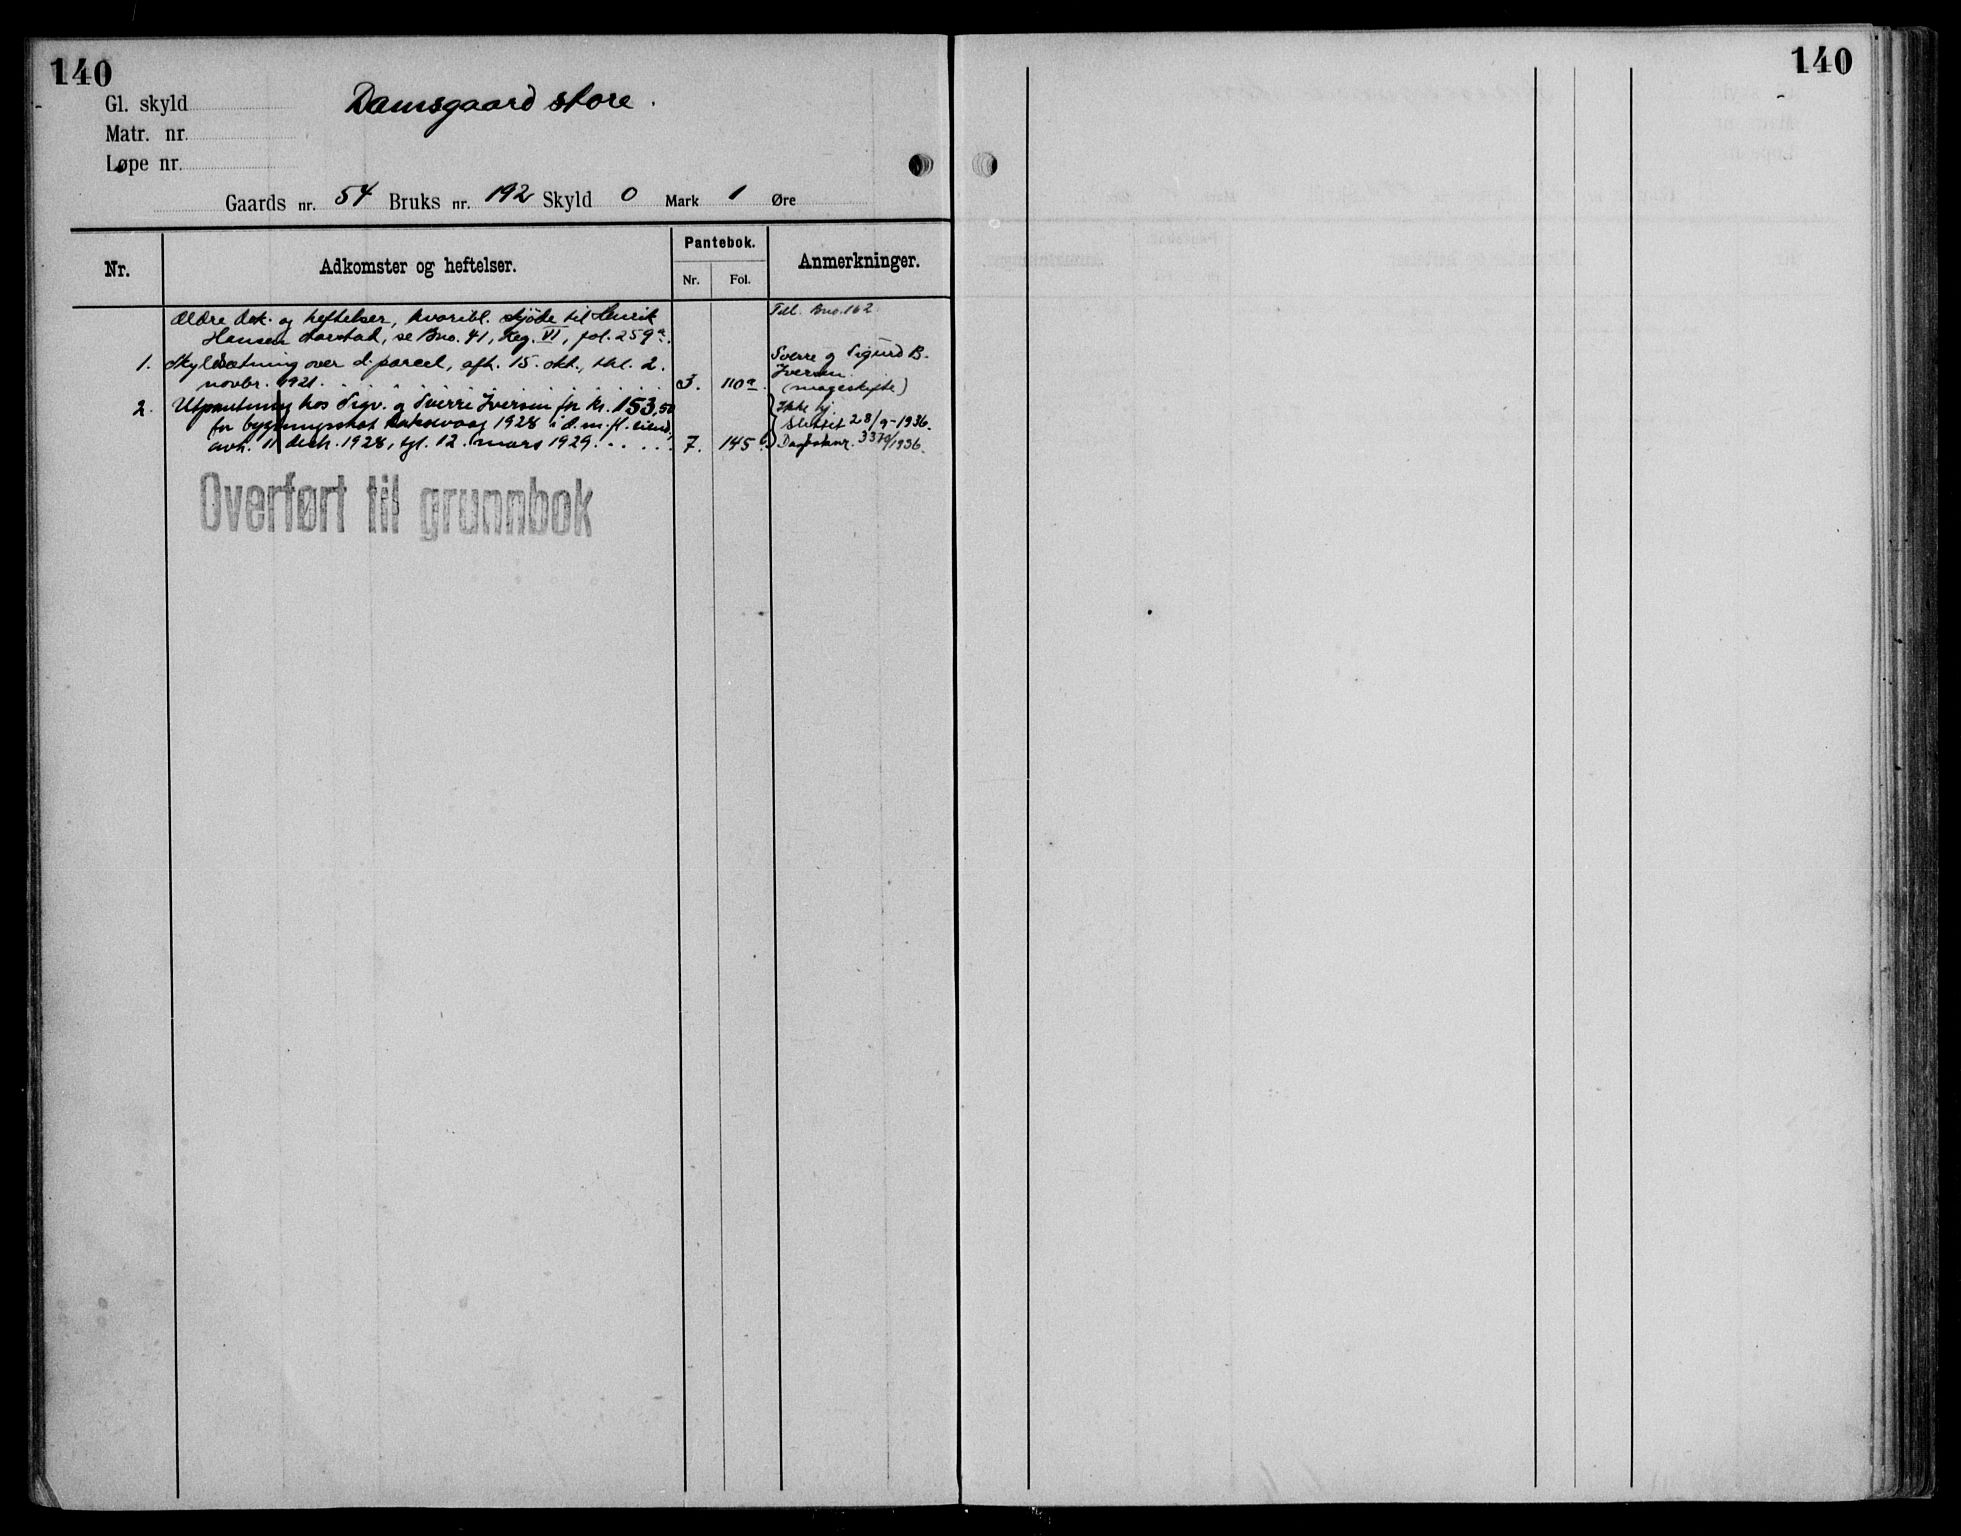 140
Gl. skyld Damsgaard store.
Matr. nr.
Løpe nr.
Gaards nr. 54 Bruks nr. 192 Skyld 0 Mark 1 Øre
Nr. Adkomster og heftelser. Pantebok. Anmerkninger.
Nr. Fol.
Ældre dok. og heftelser, hvoribl. skjöde til Henrik Till. Bno. 162
Hansen, se Bno. 41, Reg. VI, fol. 259a.
1. Skyldsætning over d. parcel, afh. 15. okt., thl. 2. Sverre og Sigurd B.
novbr. 1921. 3. 110a. Iversen. (mageskifte)
2. Utpantning hos Sigv. og Sverre Iversen for kr. 153,50 Ikke hj.
for bygningsskat Laksevaag 1928 i d. m. fl. eiend. Slettet 28/9-1936.
avh. 11 desb. 1928, tgl. 12. mars 1929. 7. 145b. Dagboknr. 3370/1936.
Overført til grunnbok
140